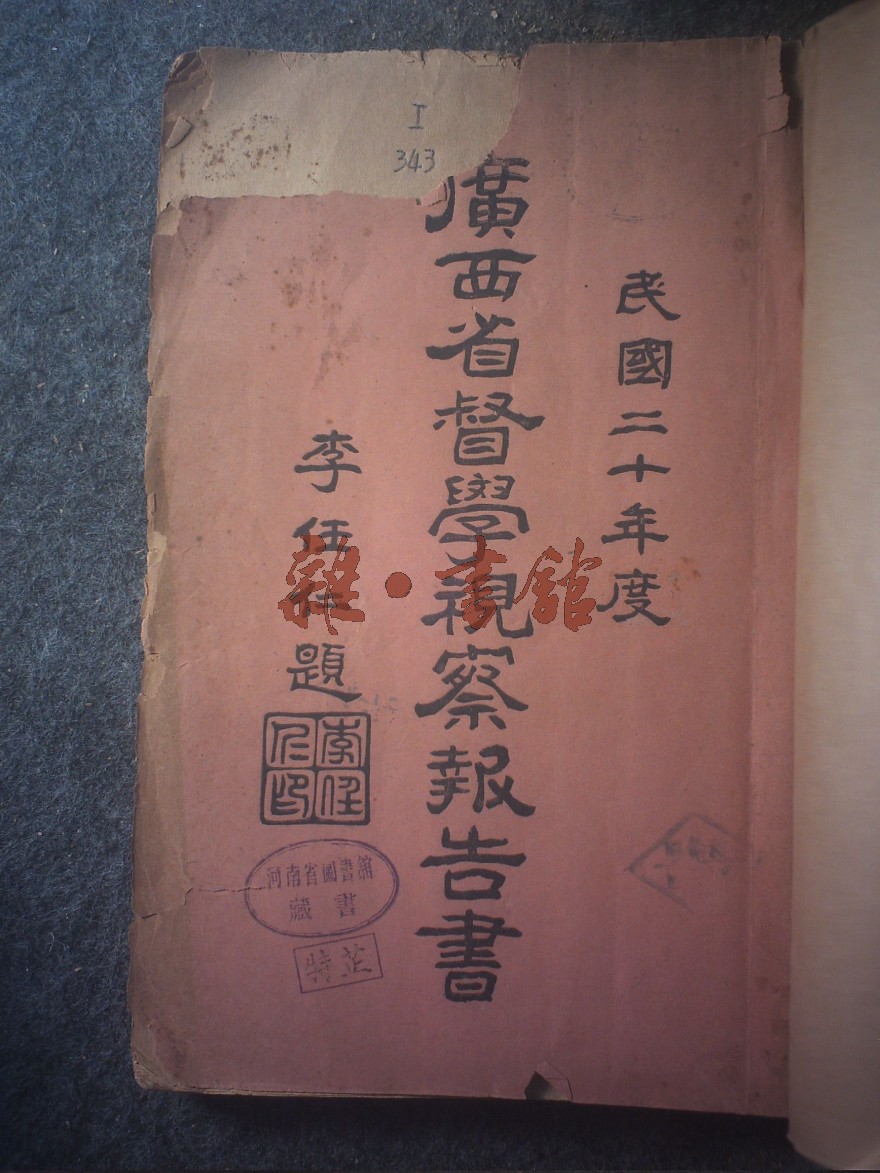 I
343
民國二十年度
廣西省督學視察報告書
李任仁題
李任仁印
河南省圖書館
藏書
雜·書館